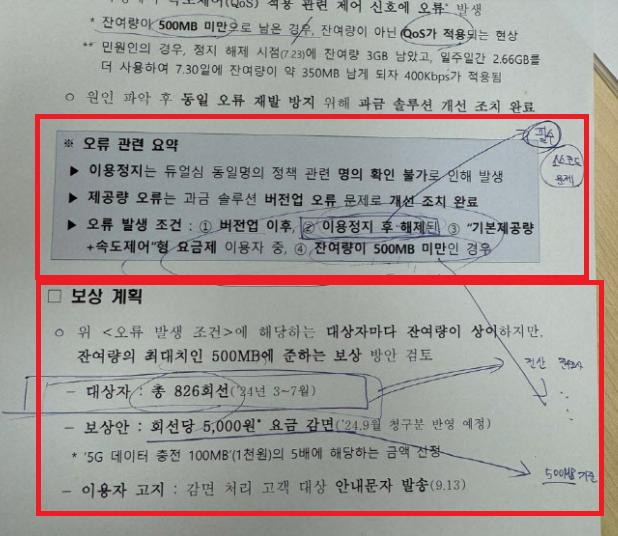 속도제어(QoS) 적용 관련 제어 신호에 오류* 발생
* 잔여량이 500MB 미만으로 남은 경우, 잔여량이 아닌 QoS가 적용되는 현상
** 민원인의 경우, 정지 해제 시점(7.23)에 잔여량 3GB 남았고, 일주일간 2.66GB를
더 사용하여 7.30일에 잔여량이 약 350MB 남게 되자 400Kbps가 적용됨
○ 원인 파악 후 동일 오류 재발 방지 위해 과금 솔루션 개선 조치 완료
※ 오류 관련 요약
필수
▶ 이용정지는 듀얼심 동일명의 정책 관련 명의 확인 불가로 인해 발생
소스코드
문제
▶ 제공량 오류는 과금 솔루션 버전업 오류 문제로 개선 조치 완료
▶ 오류 발생 조건 : ① 버전업 이후, ② 이용정지 후 해제된 ③ “기본제공량
+속도제어”형 요금제 이용자 중, ④ 잔여량이 500MB 미만인 경우
□ 보상 계획
○ 위 <오류 발생 조건>에 해당하는 대상자마다 잔여량이 상이하지만,
잔여량의 최대치인 500MB에 준하는 보상 방안 검토
전산
- 대상자 : 총 826회선('24년 3~7월)
- 보상안 : 회선당 5,000원* 요금 감면('24.9월 청구분 반영 예정)
* '5G 데이터 충전 100MB'(1천원)의 5배에 해당하는 금액 산정
500MB 기준
- 이용자 고지 : 감면 처리 고객 대상 안내문자 발송(9.13)